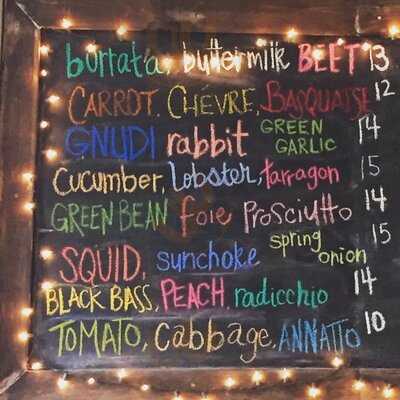 burrata, buttermilk BEET 13
CARROT, CHEVRE, BASQUAISE 12
GNUDI rabbit GREEN GARLIC 14
Cucumber, Lobster, tarragon 15
GREEN BEAN foie Prosciutto 14
SQUID, sunchoke spring onion 15
BLACK BASS, PEACH, radicchio 14
TOMATO, Cabbage, ANNATTO 10